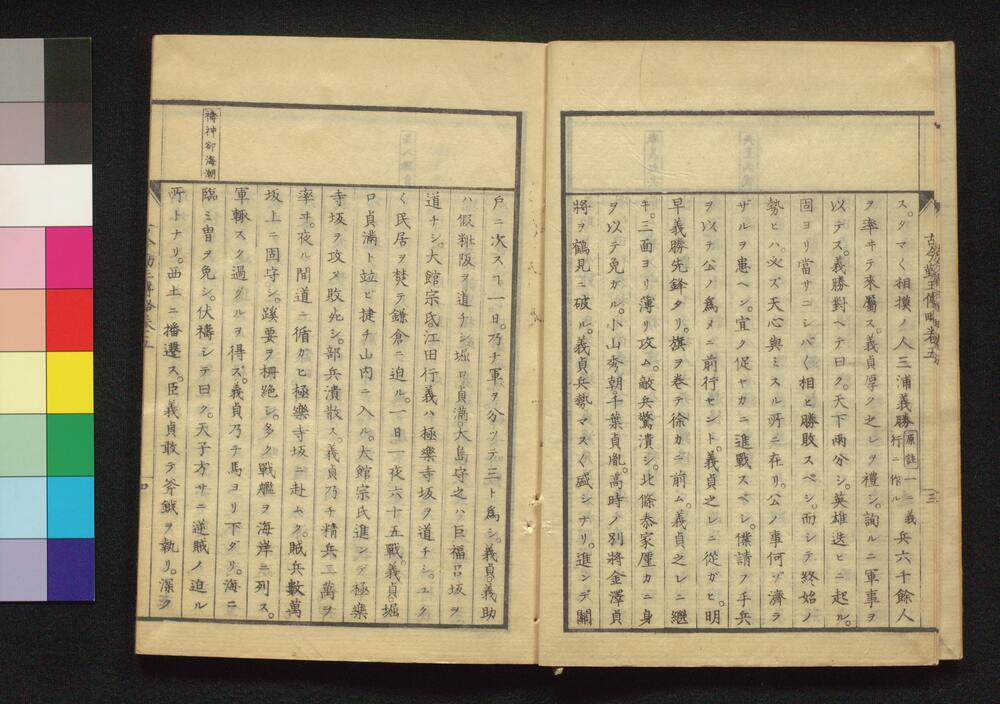 古今勤王傳 卷五
三
ス。タマ〱相摸ノ人三浦義勝原註一ニ義行ニ作ル兵六十餘人
ヲ率キテ來屬ス。義貞厚ク之レヲ禮シ。詢ルニ軍事ヲ
以テス。義勝對ヘテ曰ク。天下兩分シ。英雄迭ヒニ起ル。
固ヨリ當サニシバ〱相ヒ勝敗スベシ。而シテ終始ノ
勢ヒハ。必ズ天心與ミスル所ニ在リ。公ノ事何ゾ濟ラ
ザルヲ患ヘン。宜ク促ヤカニ進戰スベシ。僕請フ手兵
ヲ以テ公ノ爲メニ前行セント。義貞之レニ從ガヒ。明
早義勝先鋒タリ。旗ヲ卷テ徐カニ前ム。義貞之レニ繼
キ。三面ヨリ薄リ攻ム。敵兵驚潰シ。北條泰家厪カニ身
ヲ以テ免ガル。小山秀朝千葉貞胤。高時ノ別將金澤貞
將ヲ鶴見ニ破ル。義貞兵勢マスマス盛シナリ。進ンデ關
戶ニ次スヿ一日。乃チ軍ヲ分ツテ三ト爲シ。義貞。義助
ハ假粧阪ヲ道チシ。堀口貞滿。大島守之ハ巨福呂坂ヲ
道チシ。大館宗氏。江田行義ハ極樂寺坂ヲ道チシ。ユク〱
民居ヲ焚テ鎌倉ニ迫ル。一日一夜六十五戰。義貞。堀
口貞滿ト竝ビ捷チ山內ニ入ル。大館宗氏進ンデ極樂
寺坂ヲ攻メ敗死シ。部兵潰散ス。義貞乃チ精兵二萬ヲ
率ヰ。夜ル間道ニ循ガヒ極樂寺坂ニ赴ムク。賊兵數萬
坂上ニ固守シ。蹊要ヲ柵絕シ。多ク戰艦ヲ海岸ニ列ス。
軍輙スク過グルヲ得ズ。義貞乃チ馬ヨリ下ダリ。海ニ
臨ミ胄ヲ免シ。伏禱シテ曰ク。天子方サニ逆賊ノ迫ル
所トナリ。西土ニ播遷ス。臣義貞敢テ斧鉞ヲ執リ。深ク
禱神卻海潮
四